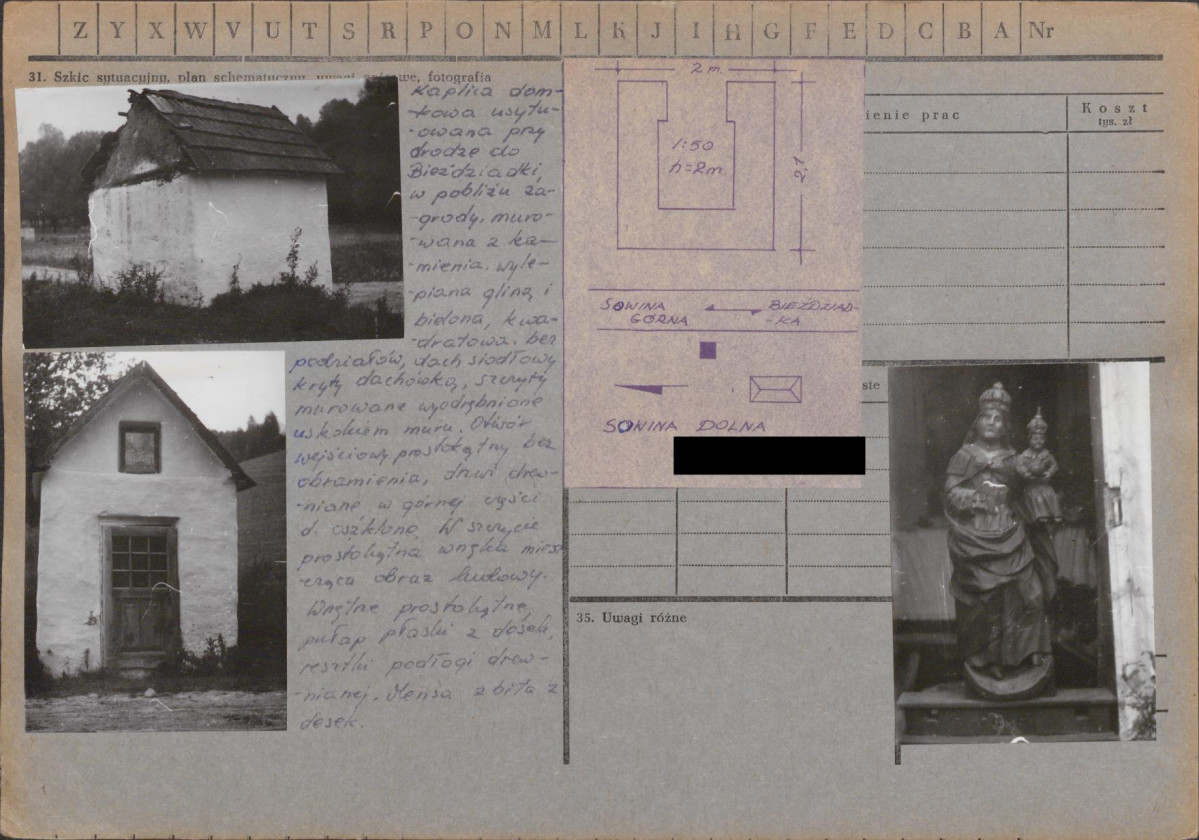 Z Y X W V U T S R P O N M L K J I H G F E D C B A Nr
31. Szkic sytuacyjny, plan schematyczny, uwagi we, fotografia
Kaplica dom-
-kowa usytu-
-owana przy
drodze do
Bieździadki,
w pobliżu za-
-grody, muro-
-wana z ka-
mienia, wyle-
-piana gliną i
bielona, kwa-
-dratowa, bez
podziałów, dach siodłowy
kryty dachówką, szczyty
murowane wyodrębnione
uskokiem muru. Otwór
wejściowy prostokątny bez
obramienia, drzwi drew-
-niane w górnej części
d. oszklone. W szczycie
prostokątna wnęka miesz-
cząca obraz ludowy.
Wnętrze prostokątne,
pułap płaski z desek,
resztki podłogi drew-
-nianej. Mensa zbita z
desek.
2 m
1:50
h=2m
2,1
SOWINA
GÓRNA
BIEŹDZIAD-
-KA
SOWINA DOLNA
ienie prac
Koszt
tys. zł
ste
35. Uwagi różne